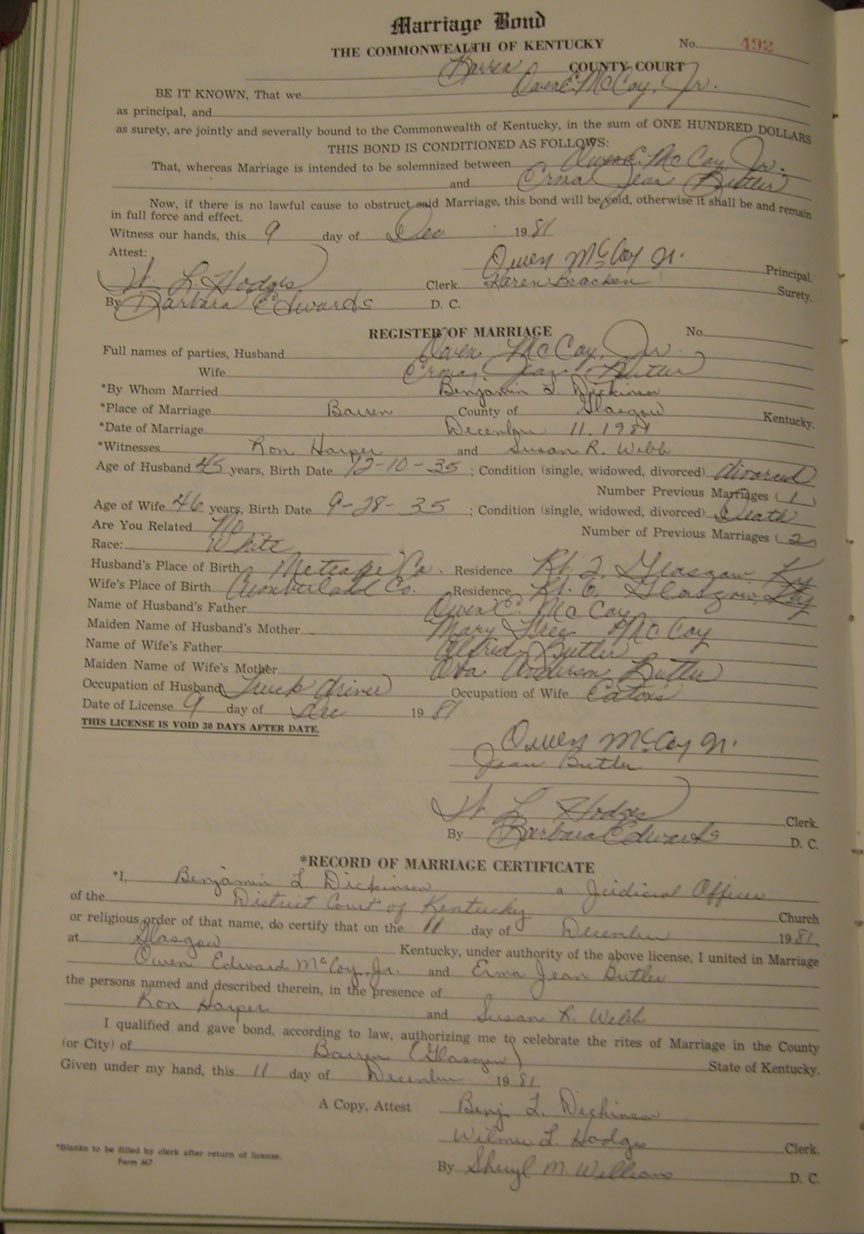 Marriage Bond
THE COMMONWEALTH OF KENTUCKY No. 492
Barren COUNTY COURT
BE IT KNOWN, That we Owen E. McCoy, Jr.
as principal, and
as surety, are jointly and severally bound to the Commonwealth of Kentucky, in the sum of ONE HUNDRED DOLLARS
THIS BOND IS CONDITIONED AS FOLLOWS:
That, whereas Marriage is intended to be solemnized between Owen E. McCoy Jr.
and Erma Jean Butler
Now, if there is no lawful cause to obstruct said Marriage, this bond will be void, otherwise it shall be and remain
in full force and effect.
Witness our hands, this 9 day of Dec 1981
Attest: Owen McCoy Jr. Principal.
W. L. Hodges Clerk. Karen Bracken Surety.
By Barbara Edwards D. C.
REGISTER OF MARRIAGE No.
Full names of parties, Husband Owen McCoy, Jr.
Wife Erma Jean Butler
*By Whom Married Benjamin L. Dickinson
*Place of Marriage Barren County of Glasgow Kentucky.
*Date of Marriage December 11, 1981
*Witnesses Ron Harper and Susan R. Webb
Age of Husband 45 years, Birth Date 12-10-35; Condition (single, widowed, divorced) divorced
Number Previous Marriages (1
Age of Wife 46 years, Birth Date 9-28-35; Condition (single, widowed, divorced) Death
Are You Related No Number of Previous Marriages (2
Race: White
Husband's Place of Birth Metcalfe Co. Residence Rt. 2 Glasgow, Ky
Wife's Place of Birth Cumberland Co. Residence Rt. 6 Glasgow, Ky
Name of Husband's Father Owen E. McCoy
Maiden Name of Husband's Mother Mary McCoy
Name of Wife's Father Alfred Butler
Maiden Name of Wife's Mother Ova Anderson Butler
Occupation of Husband Truck driver Occupation of Wife Eatons
Date of License 9 day of Dec 1981
THIS LICENSE IS VOID 30 DAYS AFTER DATE.
Owen McCoy Jr.
Jean Butler
W. L. Hodges Clerk.
By Barbara Edwards D. C.
*RECORD OF MARRIAGE CERTIFICATE
*I, Benjamin L. Dickinson a Judicial Officer
of the District Court of Kentucky Church
or religious order of that name, do certify that on the 11 day of December 1981,
at Glasgow Kentucky, under authority of the above license, I united in Marriage
Owen Edward McCoy, Jr. and Erma Jean Butler
the persons named and described therein, in the presence of
Ron Harper and Susan R. Webb
I qualified and gave bond, according to law, authorizing me to celebrate the rites of Marriage in the County
(or City) of Barren (Glasgow) State of Kentucky.
Given under my hand, this 11 day of December 1981
A Copy, Attest Benj. L. Dickinson
Wilma L. Hodges Clerk.
*Blanks to be filled by clerk after return of license.
Form M7
By Sheryl M. Williams D. C.